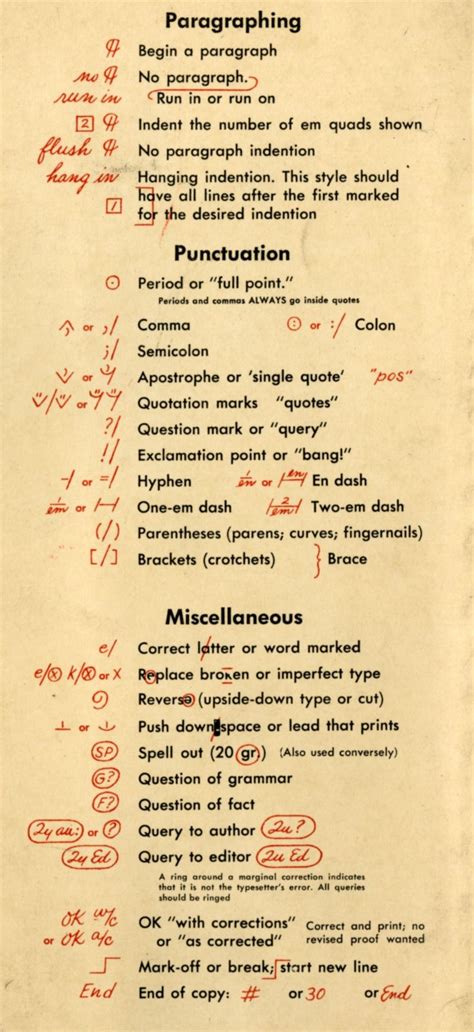 Paragraphing
¶ Begin a paragraph
no ¶ No paragraph.
run in Run in or run on
2 ¶ Indent the number of em quads shown
flush ¶ No paragraph indention
hang in Hanging indention. This style should
have all lines after the first marked
1 for the desired indention
Punctuation
⊙ Period or "full point."
Periods and commas ALWAYS go inside quotes
or ,/ Comma or :/ Colon
;/ Semicolon
or Apostrophe or 'single quote' "pos"
or Quotation marks "quotes"
?/ Question mark or "query"
!/ Exclamation point or "bang!"
-/ or =/ Hyphen 1/en or en En dash
1/em or One-em dash 2/em Two-em dash
(/) Parentheses (parens; curves; fingernails)
[/] Brackets (crotchets) } Brace
Miscellaneous
e/ Correct latter or word marked
e/⊗ k/⊗ or X Replace broken or imperfect type
Reverse (upside-down type or cut)
⊥ or Push down space or lead that prints
SP Spell out (20 gr.) (Also used conversely)
G? Question of grammar
F? Question of fact
Qy au: or ? Query to author Qu?
Qy Ed Query to editor Qu Ed
A ring around a marginal correction indicates
that it is not the typesetter's error. All queries
should be ringed
OK w/c OK "with corrections" Correct and print; no
or OK a/c or "as corrected" revised proof wanted
Mark-off or break; start new line
End End of copy: # or 30 or End